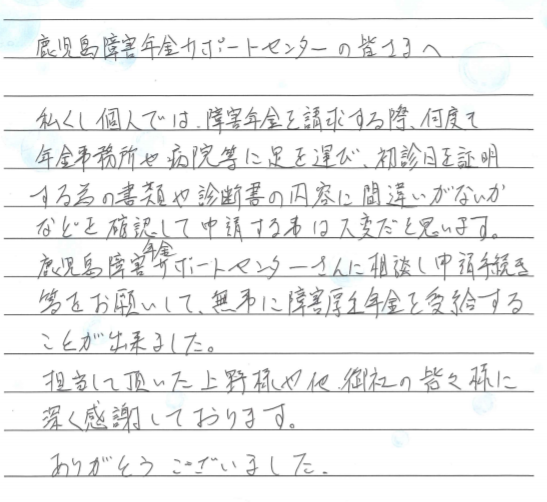 鹿児島障害年金サポートセンターの皆さまへ
私くし個人では、障害年金を請求する際、何度も
年金事務所や病院等に足を運び、初診日を証明
する為の書類や診断書の内容に間違いがないか
などを確認して申請する事は大変だと思います。
鹿児島障害年金サポートセンターさんに相談し申請手続き
等をお願いして、無事に障害厚生年金を受給する
ことが出来ました。
担当して頂いた上野様や他、御社の皆々様に
深く感謝しております。
ありがとうございました。